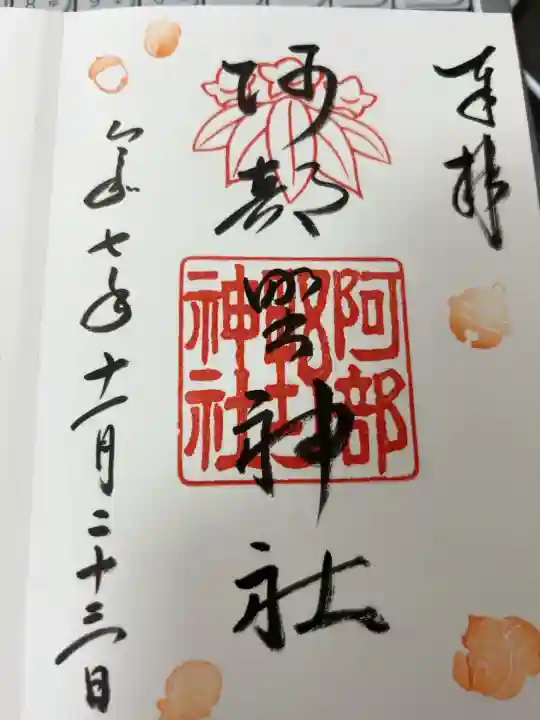 奉拝
阿部野神社
阿部野神社
令和七年十一月二十三日